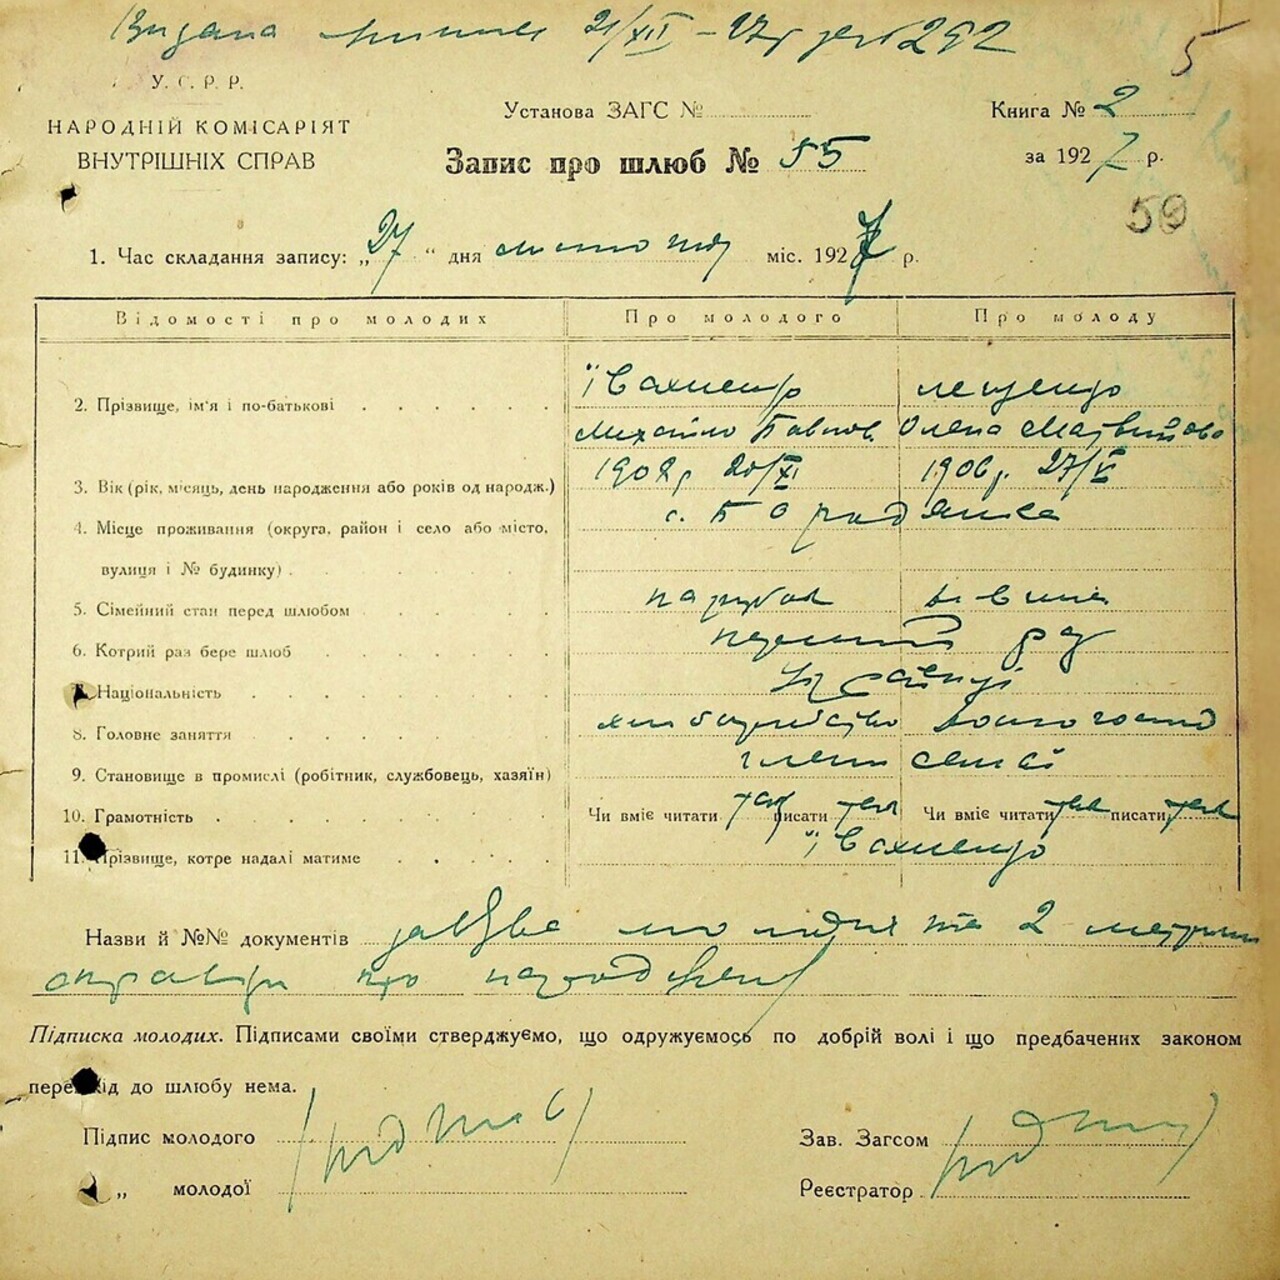 Видана 21/XII – 27р 292
5
У. С. Р. Р.
НАРОДНІЙ КОМІСАРІЯТ
ВНУТРІШНІХ СПРАВ
Установа ЗАГС №
Запис про шлюб № 55
Книга № 2
за 1927 р.
59
1. Час складання запису: „27“ дня лютого міс. 1927 р.
Відомості про молодих Про молодого Про молоду
2. Прізвище, ім'я і по-батькові Івахненко Лещенко
Михайло Павлов. Олена Матвійовна
3. Вік (рік, місяць, день народження або років од народж.) 1902р 20/XI 1906р. 27/V
4. Місце проживання (округа, район і село або місто, с. Бородянка
вулиця і № будинку)
5. Сімейний стан перед шлюбом парубок дівчина
6. Котрий раз бере шлюб перший раз
7. Національність Українці
8. Головне заняття хліборобство домогоспод
9. Становище в промислі (робітник, службовець, хазяїн) члени сем'ї
10. Грамотність Чи вміє читати так писати так Чи вміє читати так писати так
11. Прізвище, котре надалі матиме Івахненко
Назви й №№ документів та 2 метричні
справки про народження
Підписка молодих. Підписами своїми стверджуємо, що одружуємось по добрій волі і що предбачених законом
перешкід до шлюбу нема.
Підпис молодого (підписи)
„ молодої
Зав. Загсом (підпис)
Реєстратор